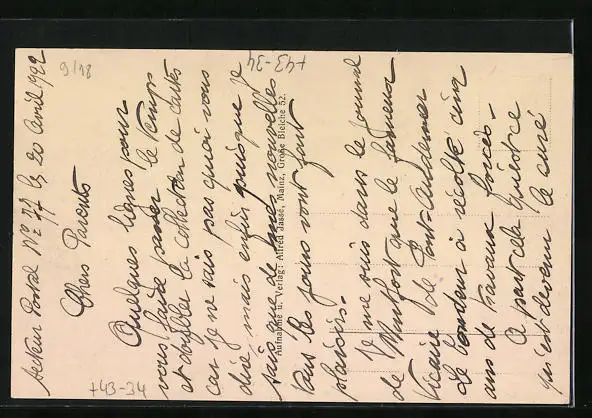 Secteur Postal N° 77 le 20 Avril 1922
Chers Parents
Quelques lignes pour
vous faire passer le temps
et doubler la collection de cartes
car je ne sais pas quoi vous
dire mais enfin puisque je
sais que de bonnes nouvelles
tous les jours vous font
plaisirs.
Je me suis dans le Journal
de Montfort que le fameux
Vicaire de Pont-Audemer
de tondeur a récolté cinq
ans de travaux forcés.
A part cela qu'est ce
qu'est devenu le curé
Aufnahme u. Verlag: Alfred Jasse, Mainz, Große Bleiche 52.
9/18
+43-34
+43-34